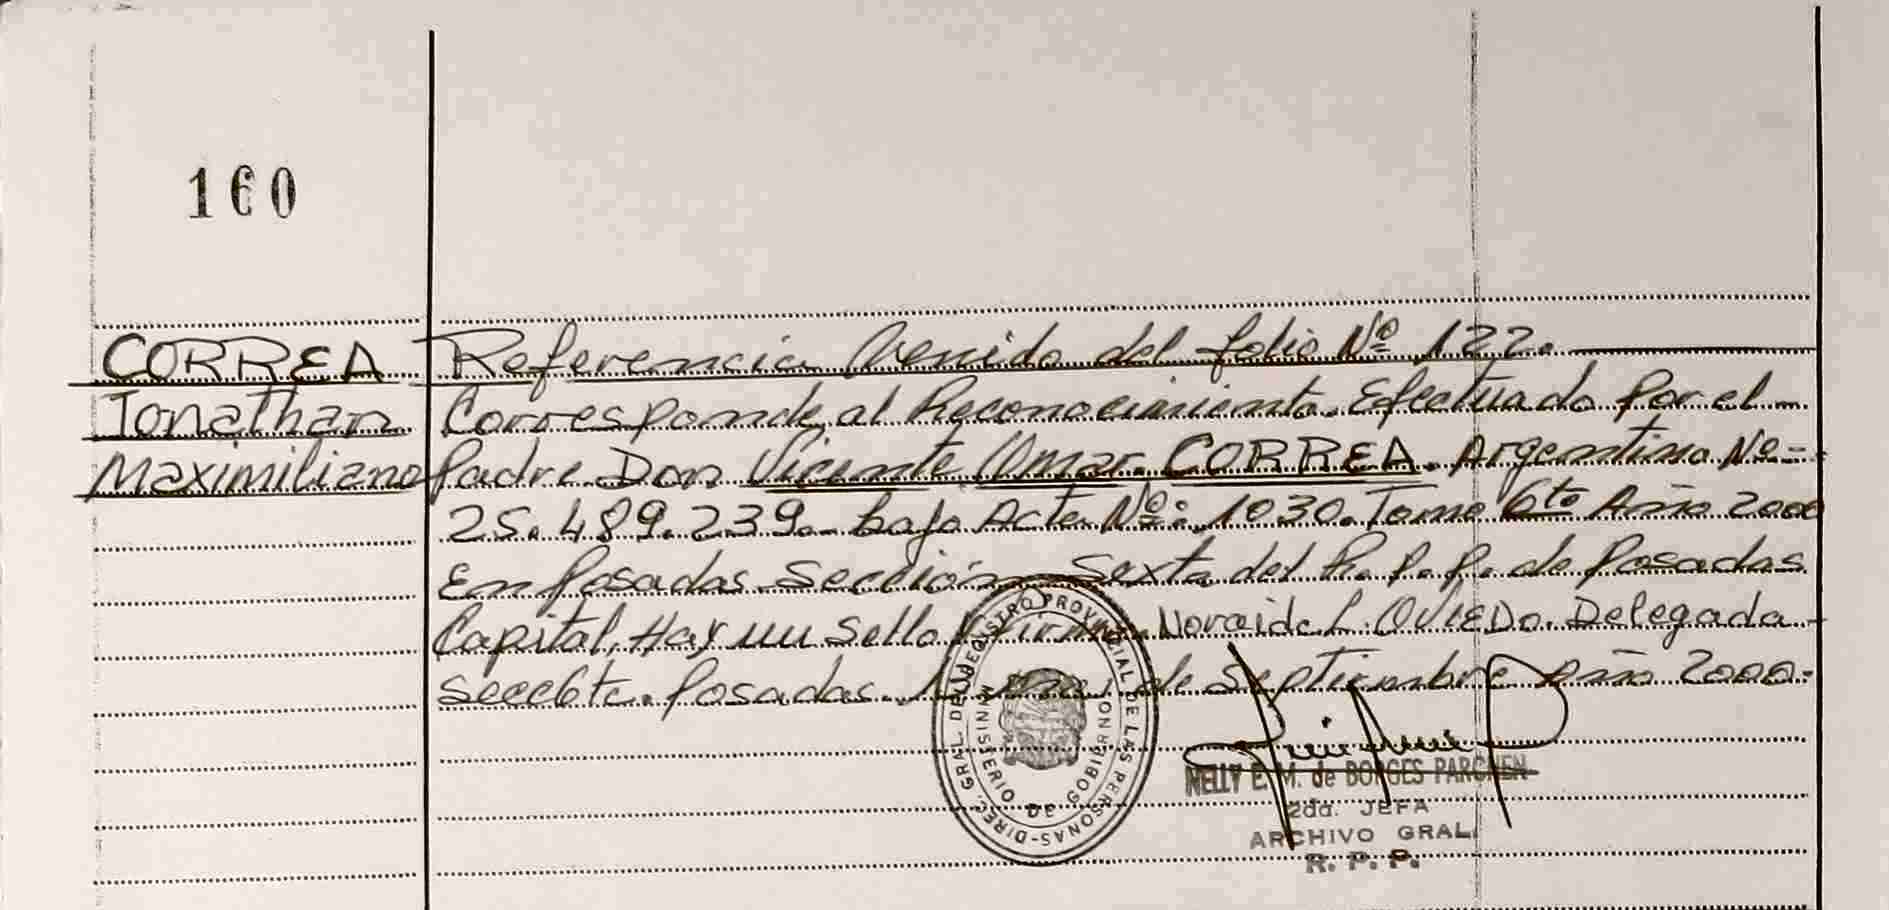 160
CORREA Referencia Venido del folio Nº 122.
Jonathan Corresponde al Reconocimiento. Efectuado Por el
Maximiliano Padre Don Vicente Omar. CORREA. Argentino Nº
25.489.239. bajo Acta Nº: 1030. Tomo 6to Año 2000
En Posadas Sección Sexta del R. P. P. de Posadas
Capital, Hay un Sello Firma. Noraide L. OVIEDO. Delegada
Secc 6ta. Posadas. de Septiembre Año 2000.
DIREC. GRAL. DEL REGISTRO PROVINCIAL DE LAS PERSONAS
MINISTERIO DE GOBIERNO
NELLY E. M. de BORGES PARCHEN
2da. JEFA
ARCHIVO GRAL.
R. P. P.